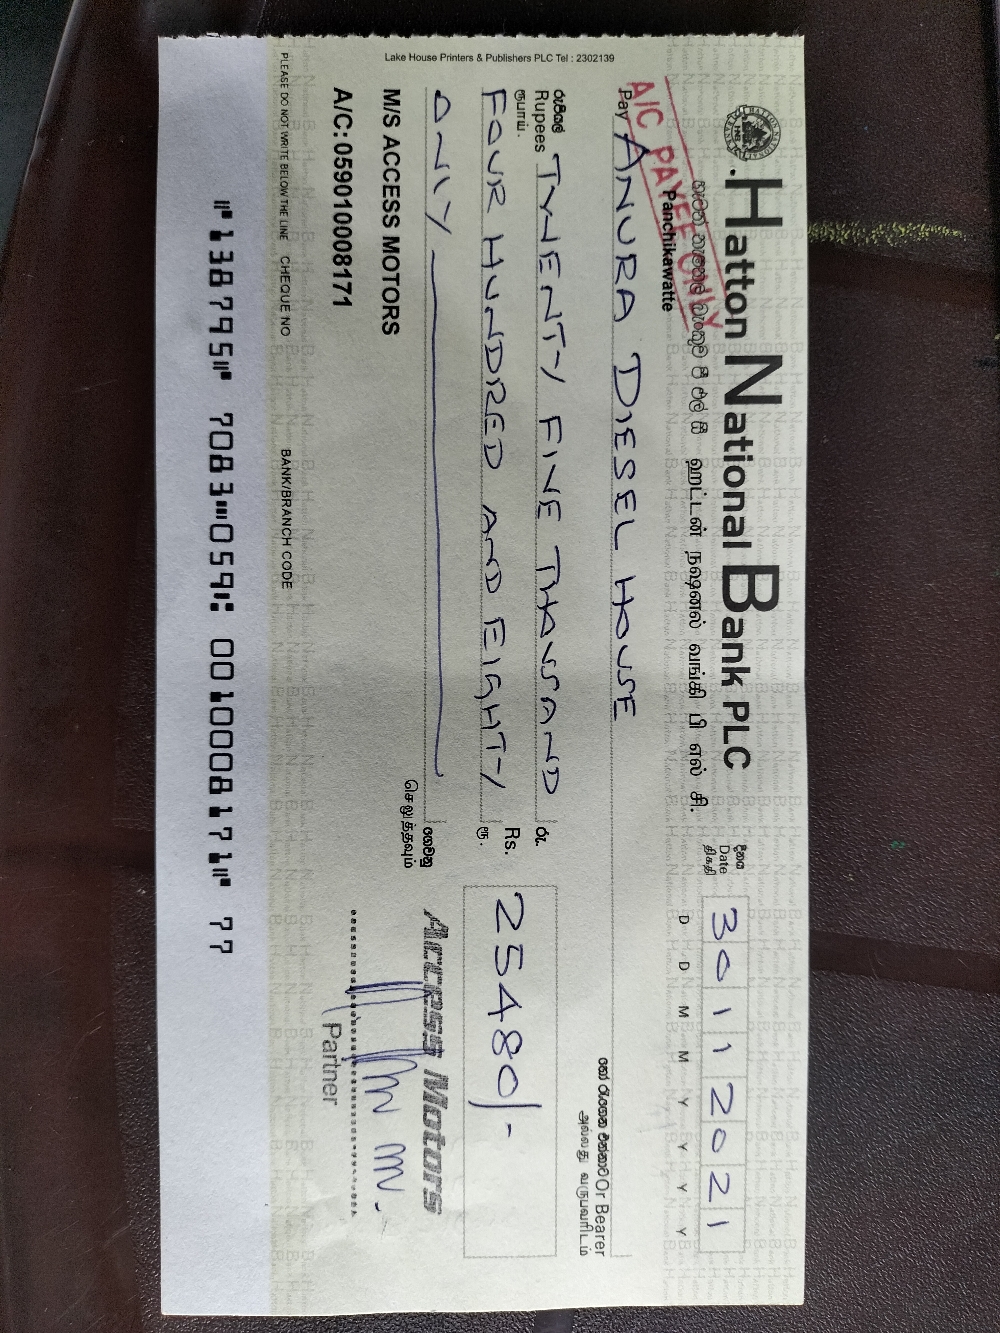 Lake House Printers & Publishers PLC Tel : 2302139
Hatton National Bank PLC
හැටන් නැෂනල් බැංකුව පී එල් සී ஹட்டன் நஷனல் வங்கி பி எல் சி.
Panchikawatte
A/C PAYEE ONLY
දිනය
Date
திகதி
30112021
D D M M Y Y Y Y
Pay ANURA DIESEL HOUSE
හෝ රැගෙන එන්නාට Or Bearer
அல்லது வருபவரிடம்
රුපියල්
Rupees TWENTY FINE THOUSAND
ரூபாய்.
FOUR HUNDRED AND EIGHTY
රු.
Rs. 25480/-
ரூ.
ONLY
ගෙවනු
செலுத்தவும்
M/S ACCESS MOTORS
Access Motors
A/C: 059010008171
Partner
PLEASE DO NOT WRITE BELOW THE LINE CHEQUE NO BANK/BRANCH CODE
⑈138795⑈ 7083⑉059⑆ 0010008171⑈ 77